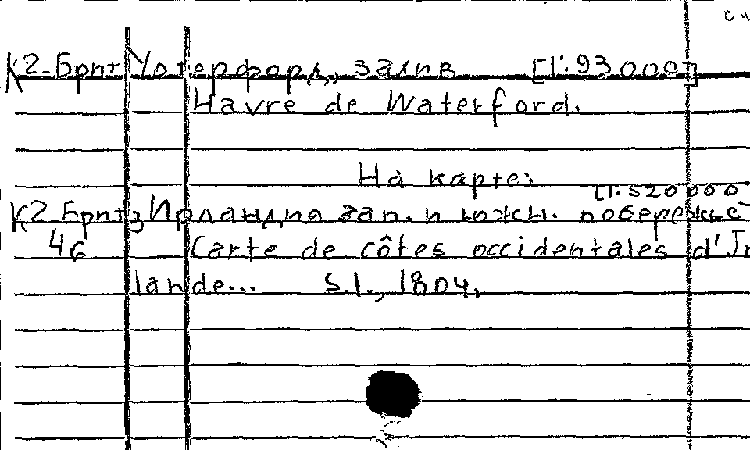 К2-Брит Уотерфорд, залив [1:93000]
Havre de Waterford.
На карте:
[1:520000
К2-Брит, Ирландия зап. и южн. побережье
4б Carte de côtes occidentales d'Ir
lande... S.l., 1804.